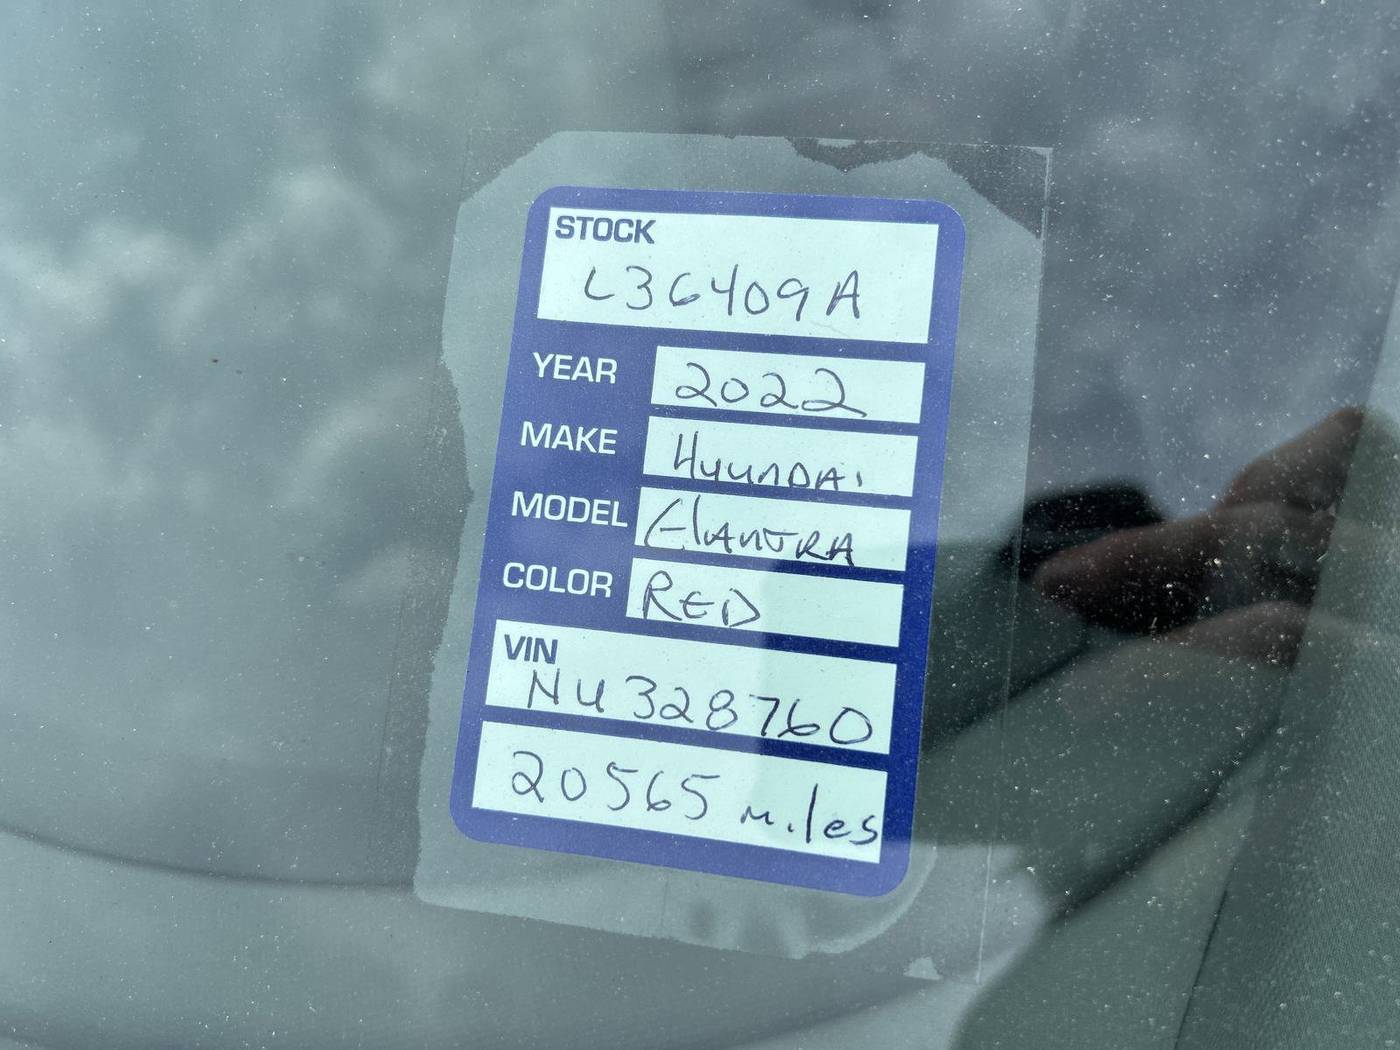 STOCK
L36409A
YEAR 2022
MAKE Hyundai
MODEL Elantra
COLOR RED
VIN
NU328760
20565 miles